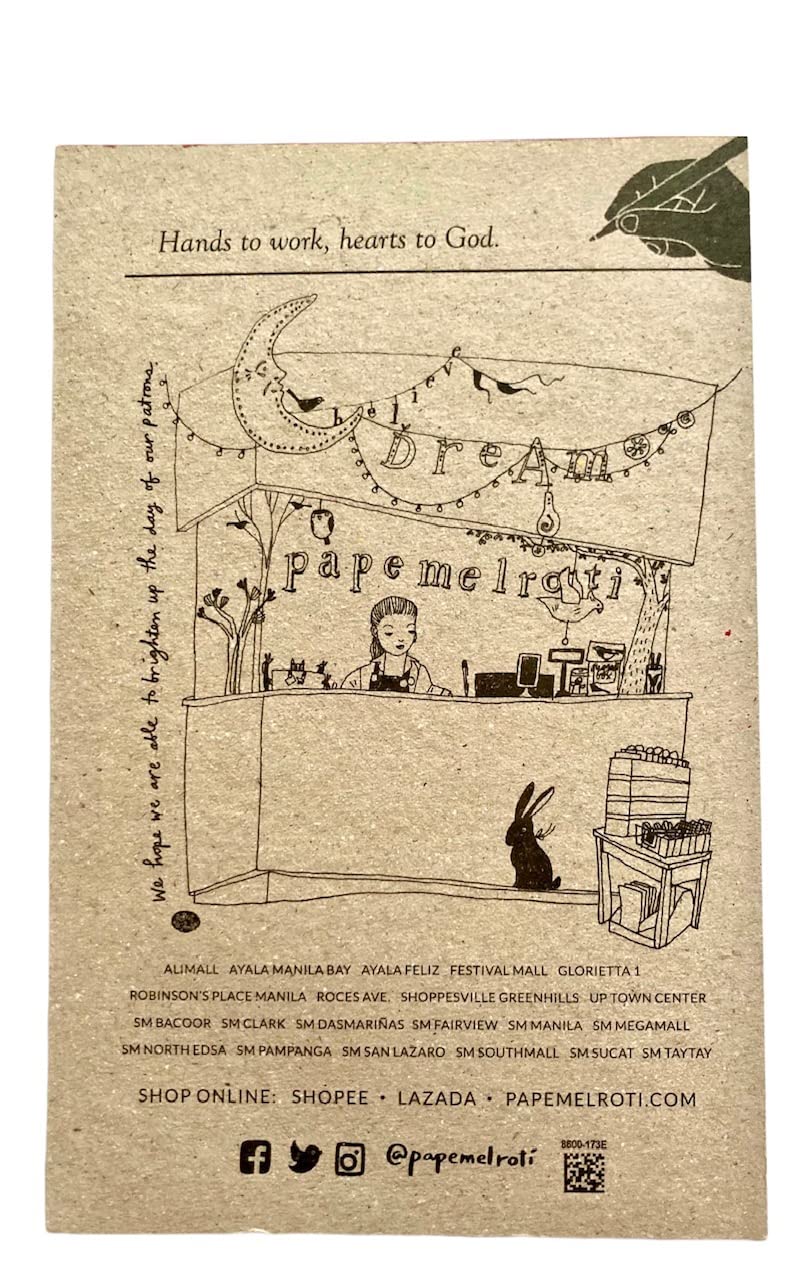 Hands to work, hearts to God.
believe
DreAm
papemelroti
We hope we are able to brighten up the day of our patrons.
ALIMALL AYALA MANILA BAY AYALA FELIZ FESTIVAL MALL GLORIETTA 1
ROBINSON'S PLACE MANILA ROCES AVE. SHOPPESVILLE GREENHILLS UP TOWN CENTER
SM BACOOR SM CLARK SM DASMARIÑAS SM FAIRVIEW SM MANILA SM MEGAMALL
SM NORTH EDSA SM PAMPANGA SM SAN LAZARO SM SOUTHMALL SM SUCAT SM TAYTAY
SHOP ONLINE: SHOPEE • LAZADA • PAPEMELROTI.COM
@papemelroti
8600-173E